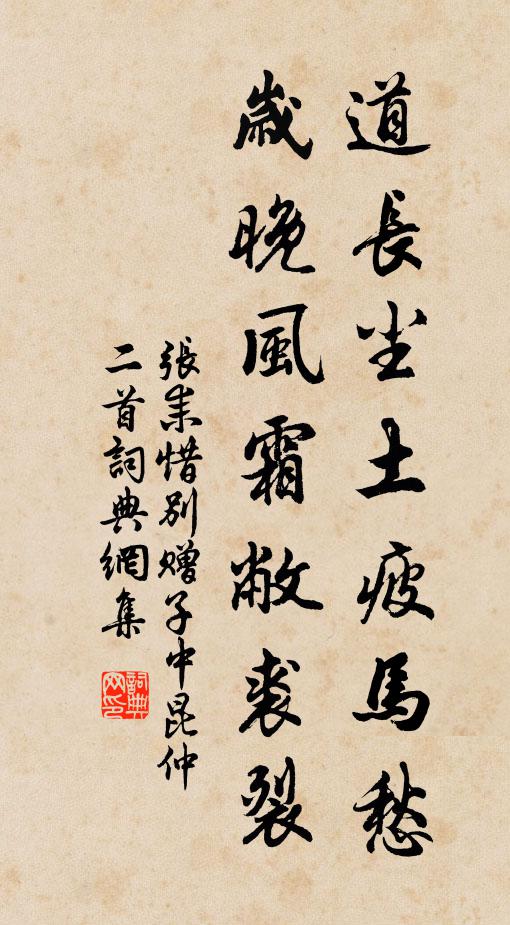 道長尘土疲馬愁
歲晚風霜敝裘裂
張耒惜別贈子中昆仲
二首詞典網集
詞典網印